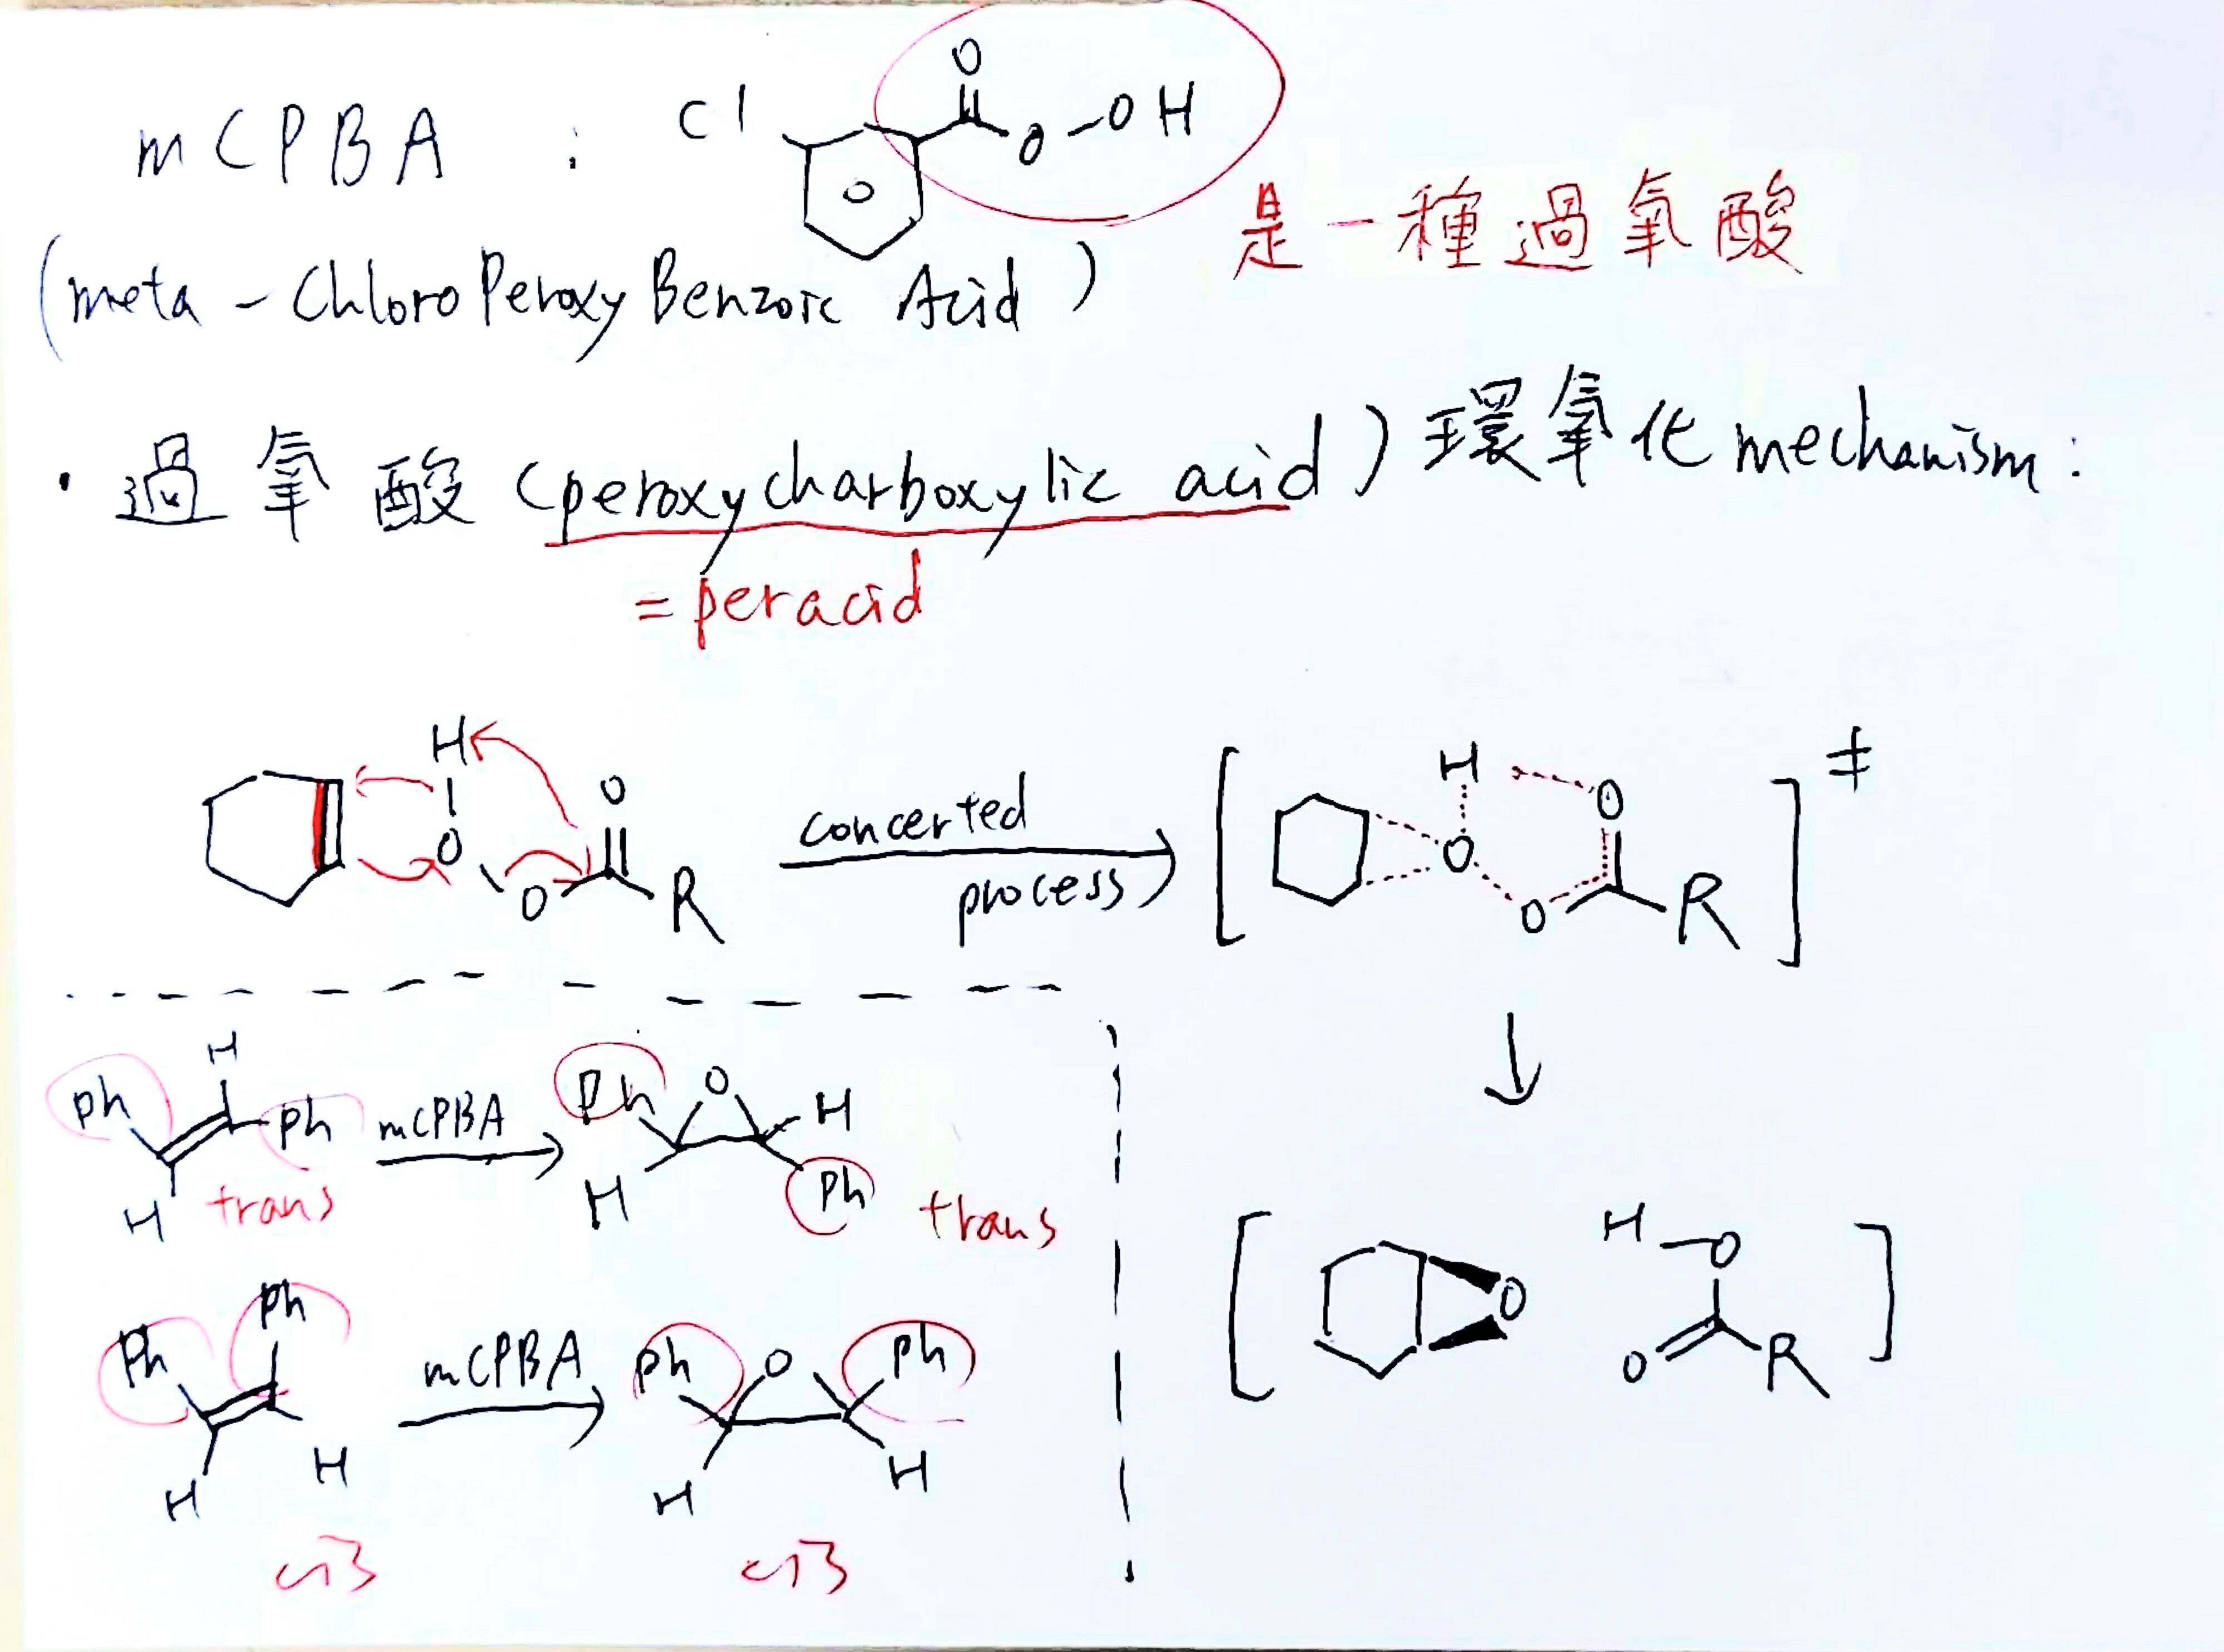 mCPBA :
Cl
O
O-OH
是一種過氧酸
(meta-ChloroPeroxyBenzoic Acid)
・過氧酸(peroxycharboxylic acid)環氧化mechanism:
=peracid
H
O
O
O
R
concerted
process
H
O
O
O
R
‡
Ph
H
Ph
H
trans
mCPBA
Ph
O
H
H
Ph
trans
Ph
Ph
H
H
cis
mCPBA
Ph
O
Ph
H
H
cis
O
H-O
O
R